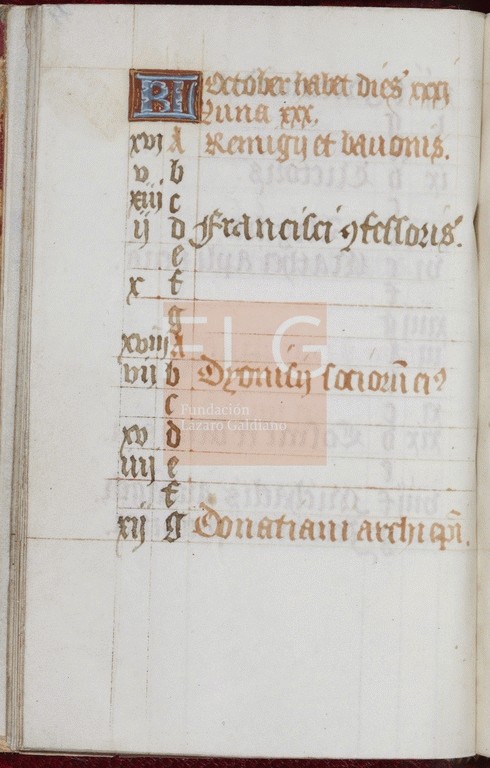 KL October habet dies xxxi
Luna xxx.
xvj A Remigij et bavonis.
v b
xiij c
ij d Francisci ꝯfessoris.
e
x f
g
xviij A
vij b Dyonisij socioru̅ ei⁹
c
xv d
iiij e
f
xij g Donatiani archiep̅i.
FLG
Fundación
Lázaro Galdiano